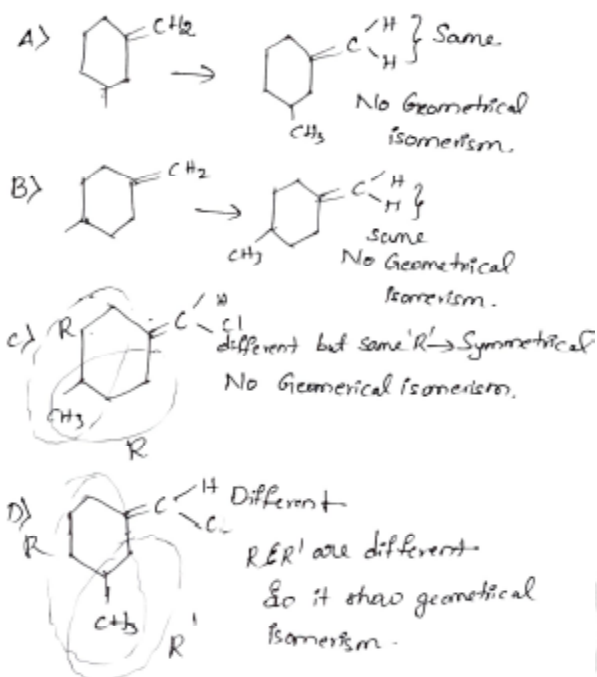 A> CH2 C H H } Same
CH3 No Geometrical
isomerism.
B> CH2 C H H }
CH3 same
No Geometrical
Isomerism.
C> R C H Cl
different but same 'R' → Symmetrical
CH3 No Geomerical isomerism.
R
D> C H Different
R C
R & R' are different
CH3 So it show geometrical
R' isomerism.